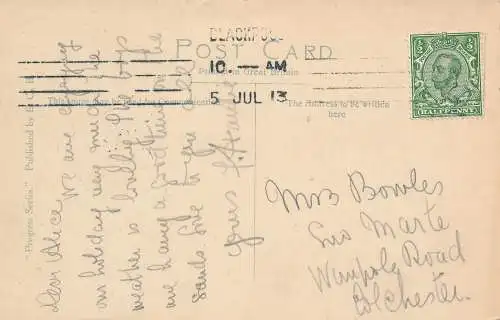 BLACKPOOL
10 — AM
5 JUL 13
POST CARD
Printed in Great Britain
½ ½
HALFPENNY
The Address to be written
here
"Progress Series." Published by E.
Dear Alice
We are enjoying
our holiday very much the
weather is lovely. The boys
are having a good time on the
sands. love to you all
yours
Mrs Bowles
Marte
Wimpole Road
Colchester.